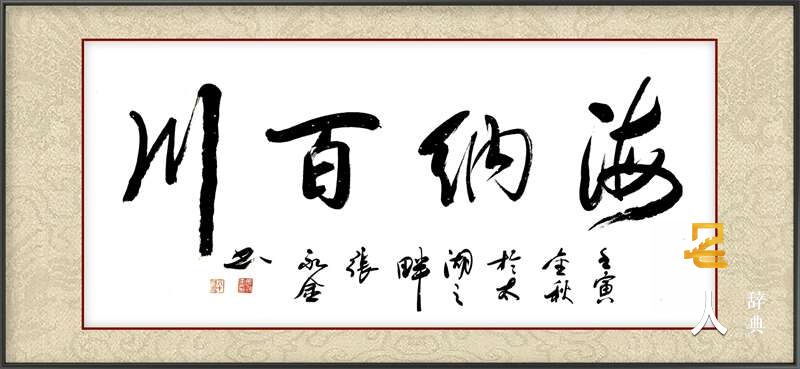 海纳百川
壬寅
金秋
於木
湖之
畔
張
永金
书
人
辞典